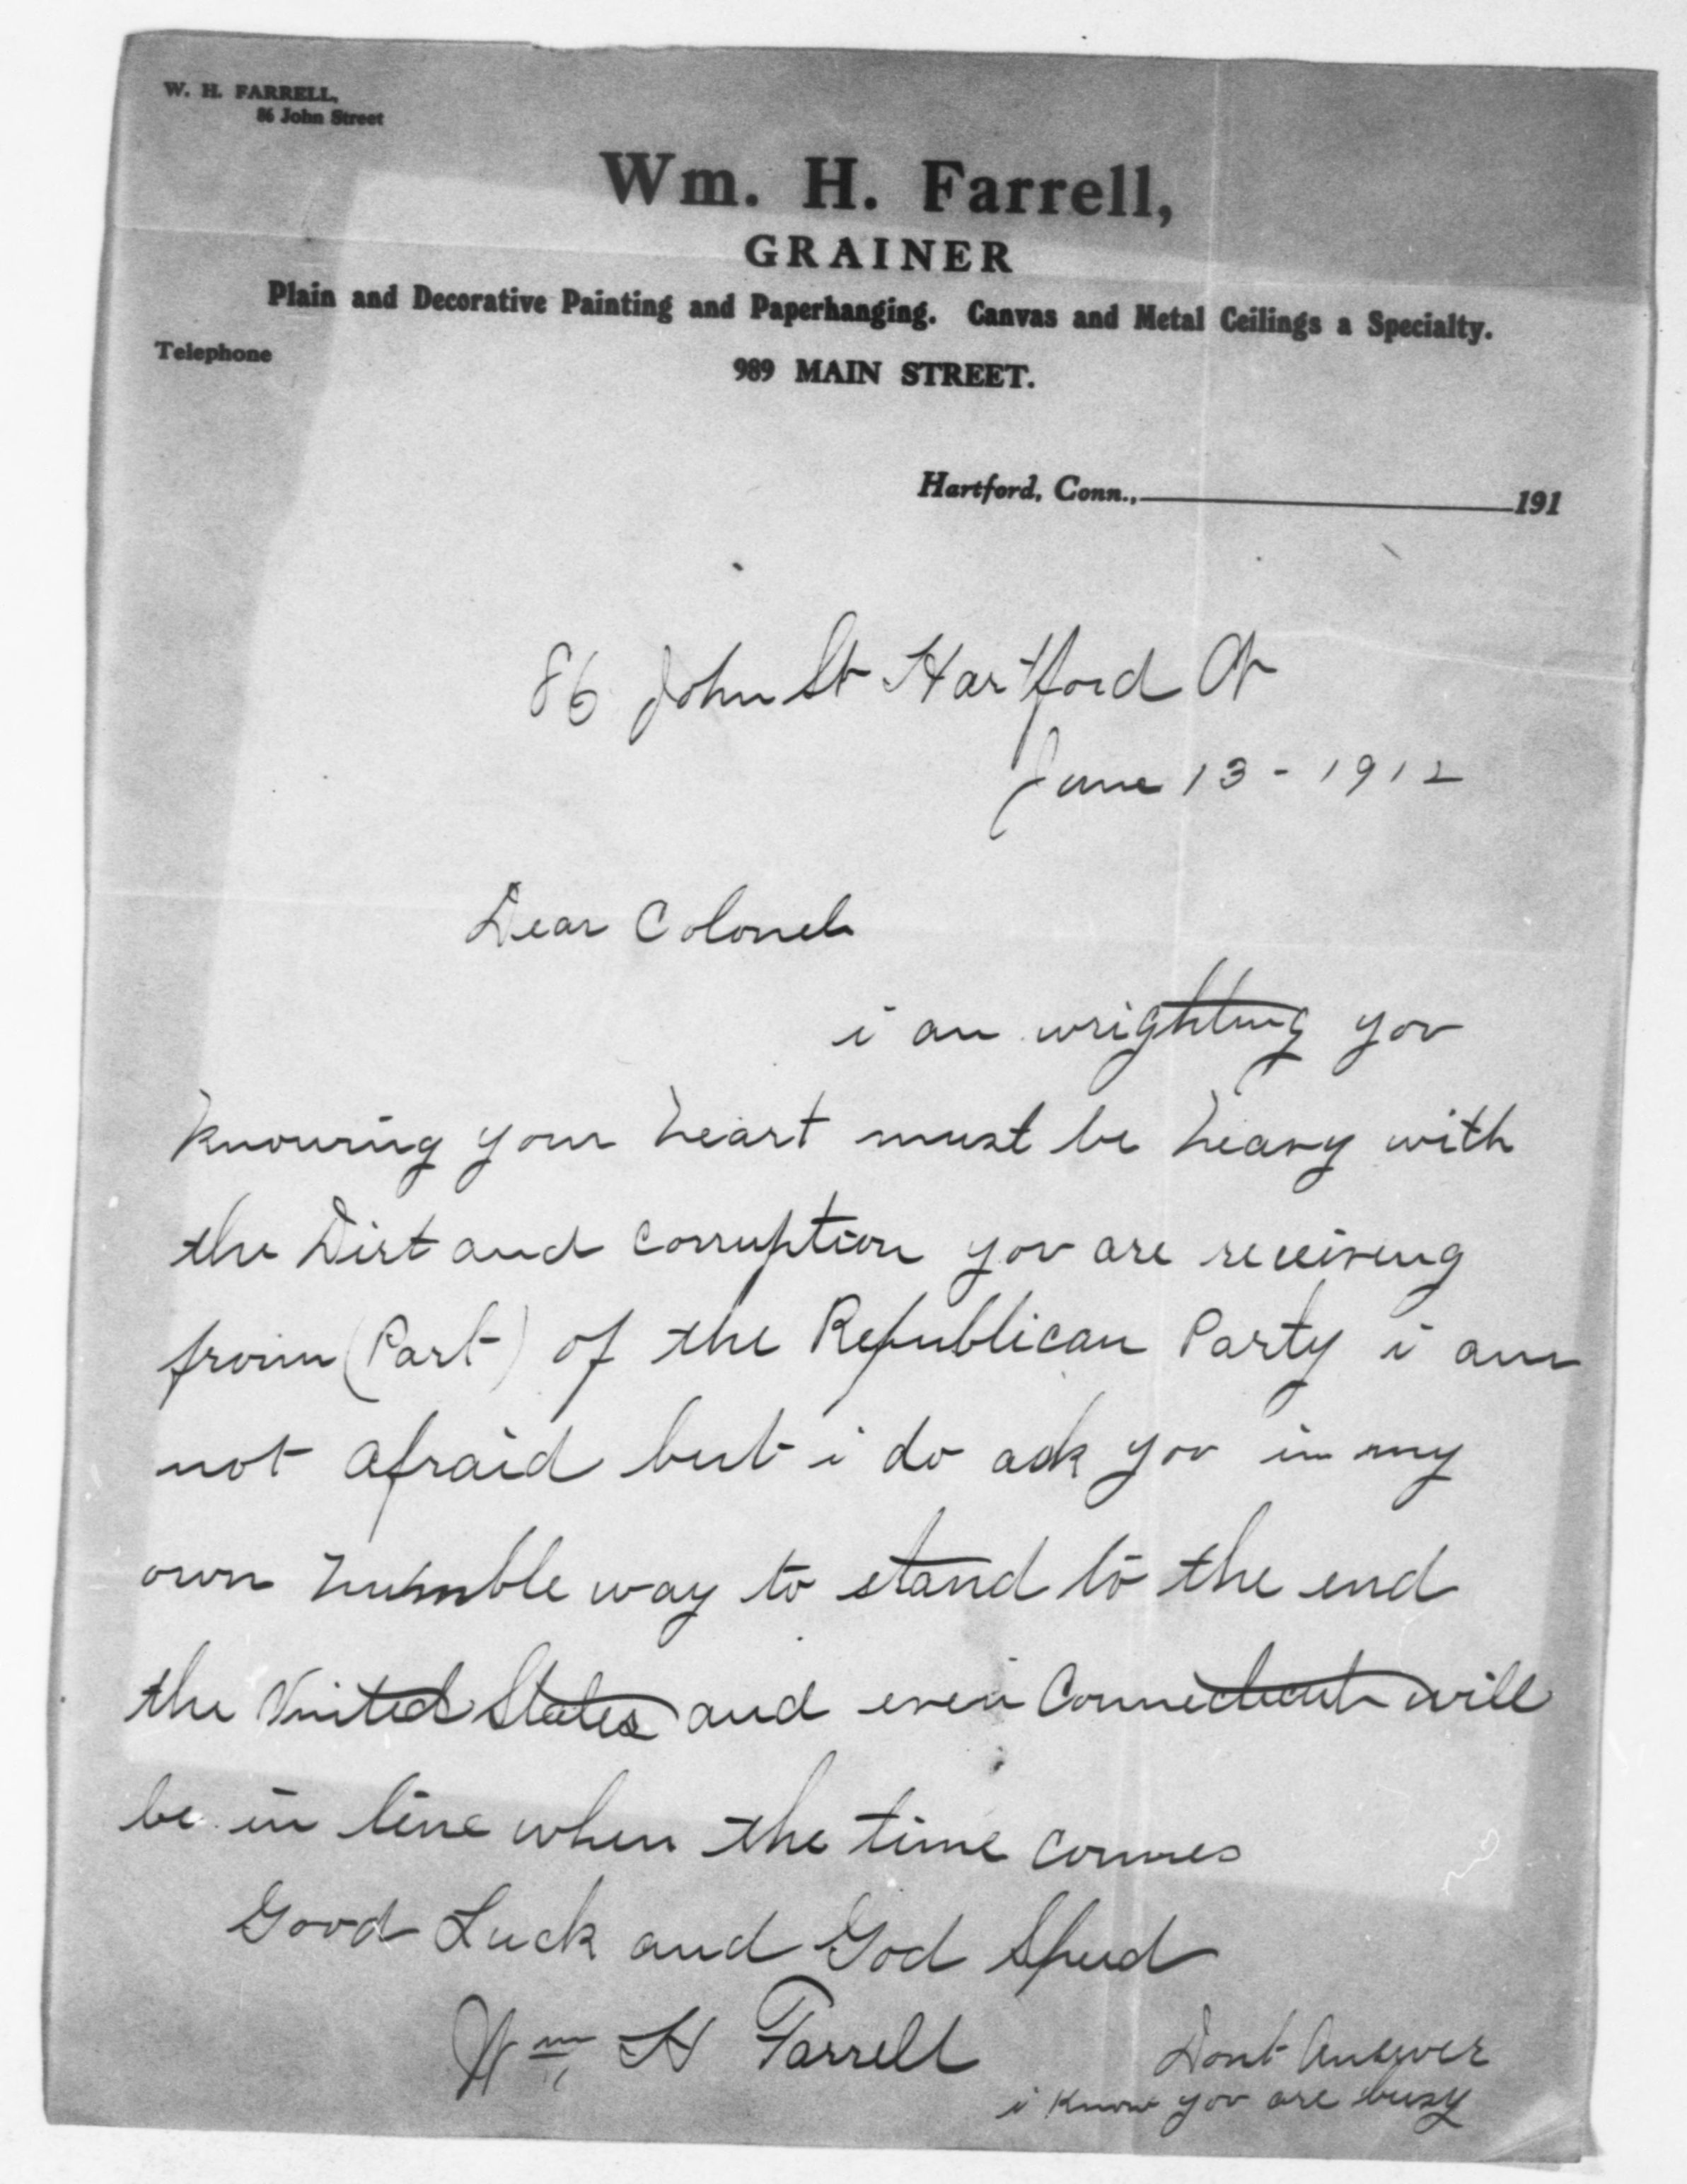 W. H. FARRELL,
86 John Street
Wm. H. Farrell,
GRAINER
Plain and Decorative Painting and Paperhanging. Canvas and Metal Ceilings a Specialty.
Telephone
989 MAIN STREET.
Hartford, Conn., 191
86 John St Hartford Ct
June 13 - 1912
Dear Colonel
i am wrighting you
knowing your heart must be heavy with
the Dirt and corruption you are receiving
from (Part) of the Republican Party i am
not afraid but i do ask you in my
own humble way to stand to the end
the United States and even Connecticut will
be in line when the time comes
Good Luck and God Speed
Wm H Farrell
Dont Answer
i know you are busy